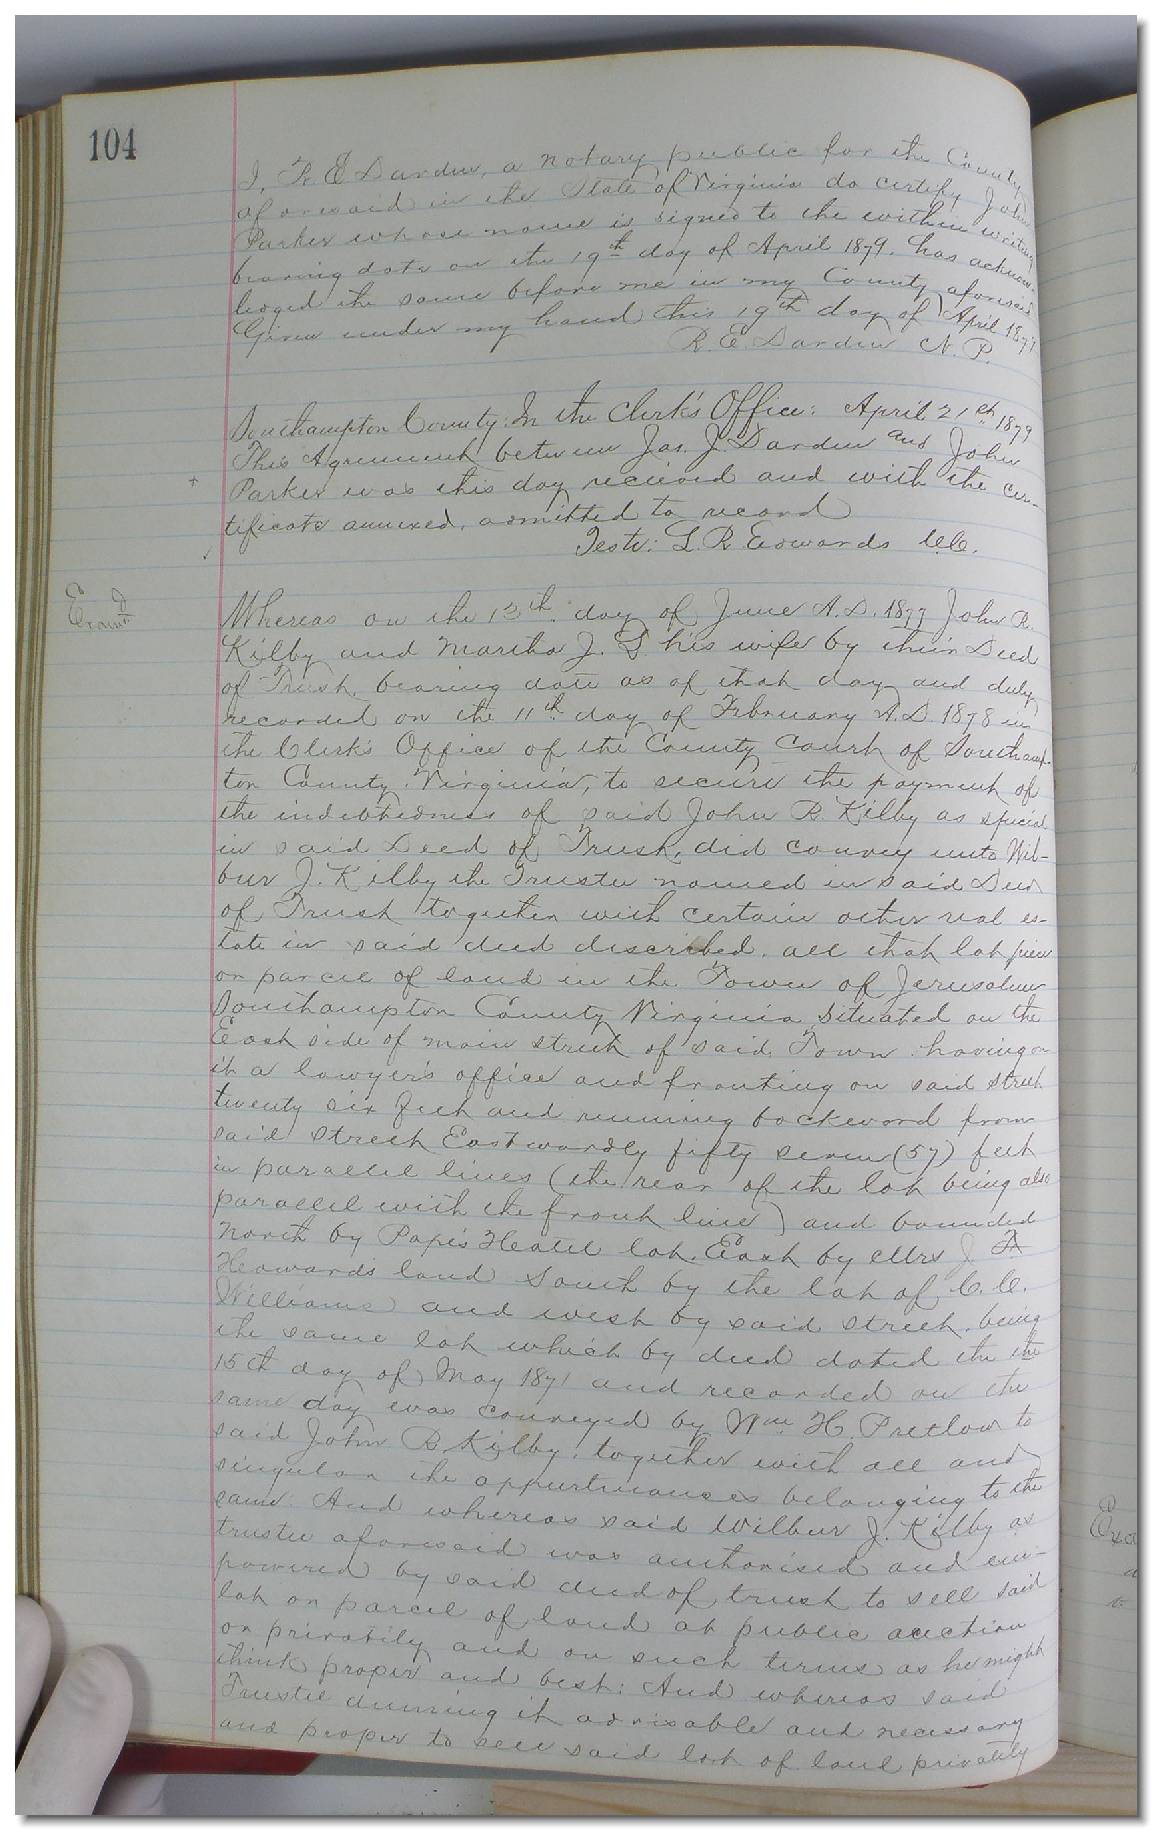 104
I, R E Darden, a notary public for the County
aforesaid in the State of Virginia do certify John
Parker whose name is signed to the within writing
bearing date on the 19th day of April 1879. has acknow-
ledged the same before me in my County aforesaid
Given under my hand this 19th day of April 1879
R. E. Darden N. P.
Southampton County: In the Clerk's Office: April 21st 1879
This Agreement between Jas. J. Darden and John
Parker was this day recieved and with the cer-
tificate annexed, admitted to record
Teste: L. R. Edwards C.C.
Examd
Whereas on the 12th day of June A.D. 1877 John R.
Kilby and Martha J. S. his wife by their Deed
of Trust, bearing date as of that day and duly
recorded on the 11th day of February A.D. 1878 in
the Clerk's Office of the County Court of Southamp-
ton County Virginia, to secure the payment of
the indebtedness of said John R. Kilby as special
in said Deed of Trust, did convey unto Wil-
bur J. Kilby the Trustee named in said Deed
of Trust together with certain other real es-
tate in said deed discribed. all that lot piece
or parcel of land in the Town of Jerusalem
Southampton County Virginia situated on the
East side of main street of said Town having on
it a lawyer's office and fronting on said street
twenty six feet and running backward from
said street Eastwardly fifty seven (57) feet
in parallel lines (the rear of the lot being also
parallel with the front line) and bounded
North by Pope's Heatel lot. East by Mrs J. F.
Heawards land South by the lot of C. C.
Williams and west by said street, being
the same lot which by deed dated the the
15th day of May 1871 and recorded on the
same day was conveyed by Wm H. Pretlow to
said John R Kilby, together with all and
singular the appurtenances belonging to the
same. And whereas said Wilbur J. Kilby as
trustee aforesaid was authorised and em-
powered by said deed of trust to sell said
lot or parcel of land at public auction
or privatily and on such terms as he might
think proper and best: And whereas said
Trustee deeming it advisable and necessary
and proper to sell said lot of land privatily